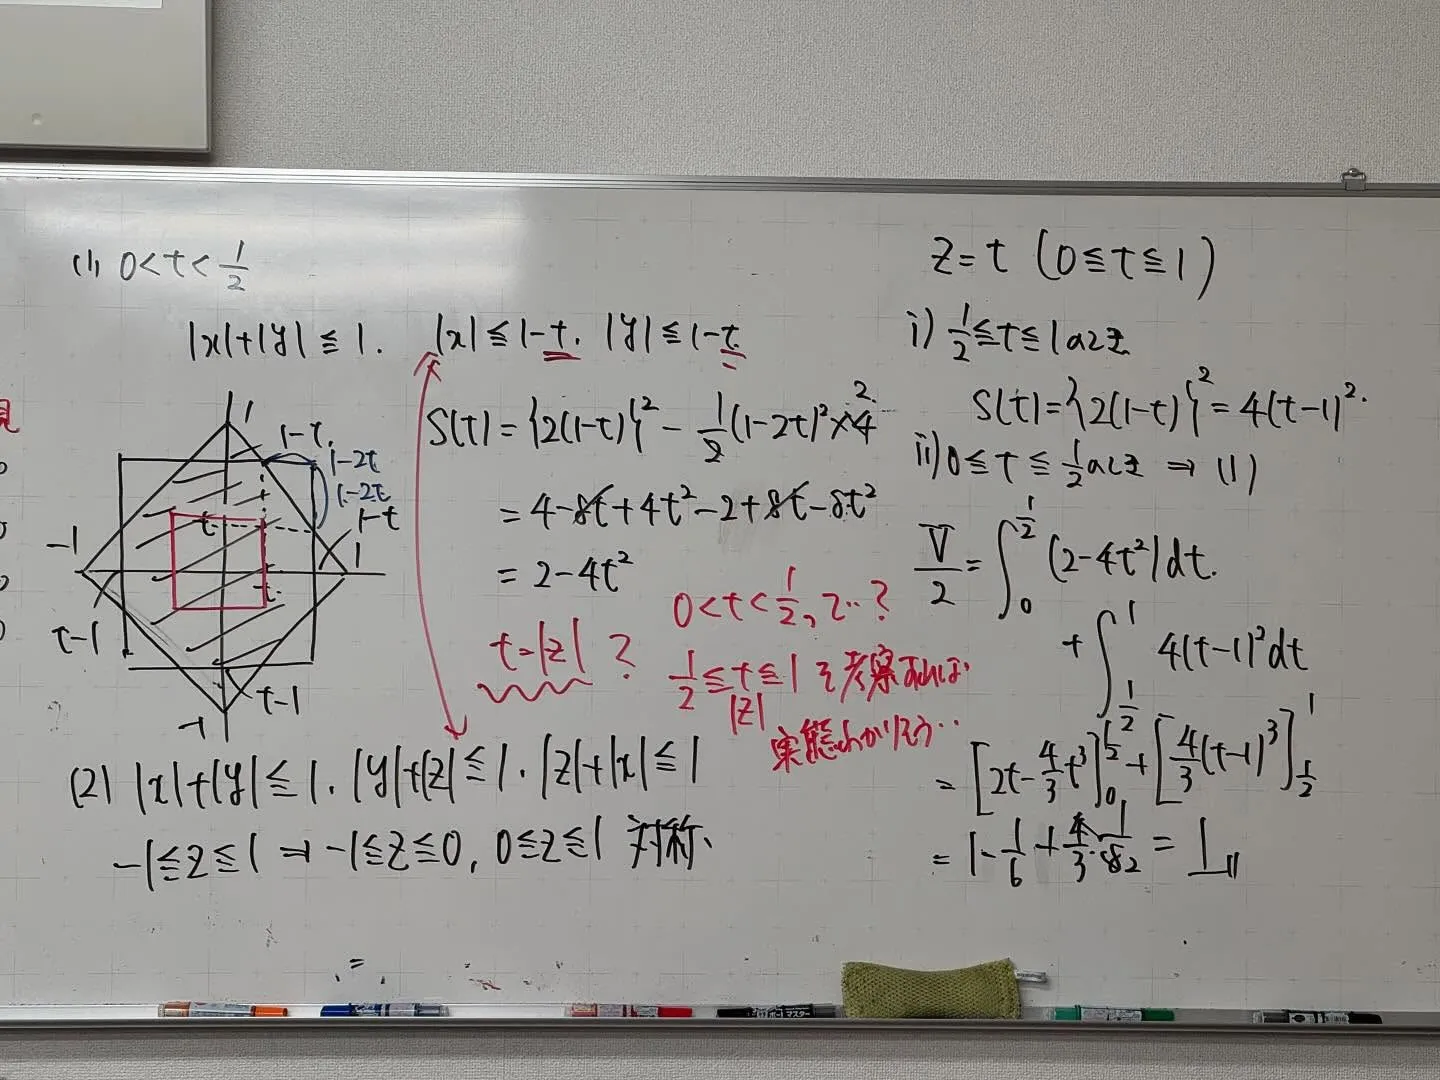 (1) 0<t<1/2
|x|+|y|≦1. |x|≦1-t. |y|≦1-t.
1
1-t.
1-2t
1-2t
1-t
t
-1
1
t
t-1
t-1
-1
S(t)={2(1-t)}²-1/2(1-2t)²×4 2.
=4-8t+4t²-2+8t-8t²
=2-4t²
t=|z| ?
0<t<1/2, で‥?
1/2≦t≦1を考察すれば
|z|
実態わかりそう‥
(2) |x|+|y|≦1. |y|+|z|≦1. |z|+|x|≦1
-1≦z≦1⇒-1≦z≦0, 0≦z≦1 対称、
z=t (0≦t≦1)
i) 1/2≦t≦1のとき
S(t)={2(1-t)}²=4(t-1)².
ii) 0≦t≦1/2のとき⇒(1)
V/2=∫₀^{1/2}(2-4t²)dt.
+∫_{1/2}^1 4(t-1)²dt
=[2t-4/3t³]₀^{1/2}+[4/3(t-1)³]_{1/2}^1
=1-1/6+4/3・1/8 2=1
見